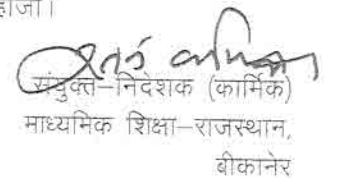 हाजा।
संयुक्त–निदेशक (कार्मिक)
माध्यमिक शिक्षा–राजस्थान,
बीकानेर